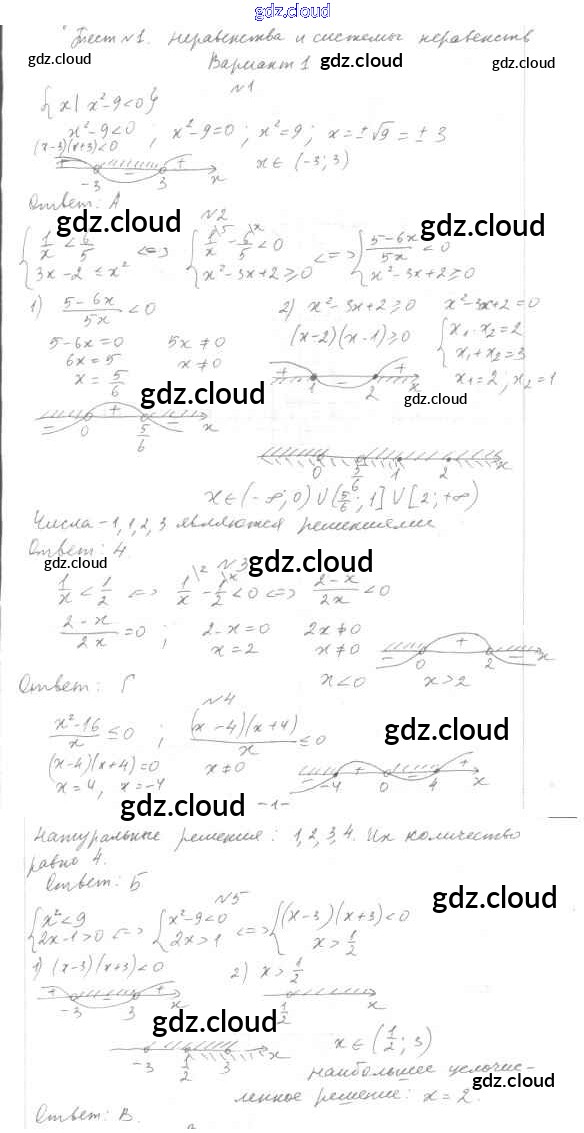 gdz.cloud
Тест №1. Неравенства и системы неравенств
gdz.cloud gdz.cloud gdz.cloud
Вариант 1
№1
{x | x²-9<0}
x²-9<0 ; x²-9=0 ; x²=9 ; x=±√9=±3
(x-3)(x+3)<0
+ - +
-3 3 x
x∈(-3;3)
Ответ: А
gdz.cloud gdz.cloud
№2
{1/x < 6/5 <=> {1/x - 6/5 < 0 <=> {(5-6x)/5x < 0
{3x-2 ≤ x² {x²-3x+2≥0 {x²-3x+2≥0
1) (5-6x)/5x < 0 2) x²-3x+2≥0 x²-3x+2=0
5-6x=0 5x≠0 (x-2)(x-1)≥0 {x₁·x₂=2
6x=5 x≠0 {x₁+x₂=3
x=5/6 x₁=2; x₂=1
+ - +
1 2 x
gdz.cloud gdz.cloud
- + -
0 5/6 x
0 5/6 1 2 x
x∈(-∞;0)∪(5/6;1]∪[2;+∞)
Числа -1,1,2,3 являются решениями
Ответ: 4.
gdz.cloud gdz.cloud gdz.cloud
№3
1/x < 1/2 <=> 1/x - 1/2 < 0 <=> (2-x)/2x < 0
(2-x)/2x = 0 ; 2-x=0 2x≠0
x=2 x≠0
- + -
0 2 x
x<0 x>2
Ответ: Г
№4
(x²-16)/x ≤ 0 ; (x-4)(x+4)/x ≤ 0
gdz.cloud
(x-4)(x+4)=0 x≠0
x=4, x=-4
- + - +
-4 0 4 x
gdz.cloud
-1-
gdz.cloud
Натуральные решения: 1,2,3,4. Их количество
равно 4.
Ответ: Б
gdz.cloud
№5
gdz.cloud
{x²<9 <=> {x²-9<0 <=> {(x-3)(x+3)<0
{2x-1>0 {2x>1 {x>1/2
1) (x-3)(x+3)<0 2) x>1/2
+ - +
-3 3 x
1/2 x
gdz.cloud
-3 1/2 3 x
x∈(1/2;3)
наибольшее целочис-
gdz.cloud
ленное решение: x=2.
Ответ: В.